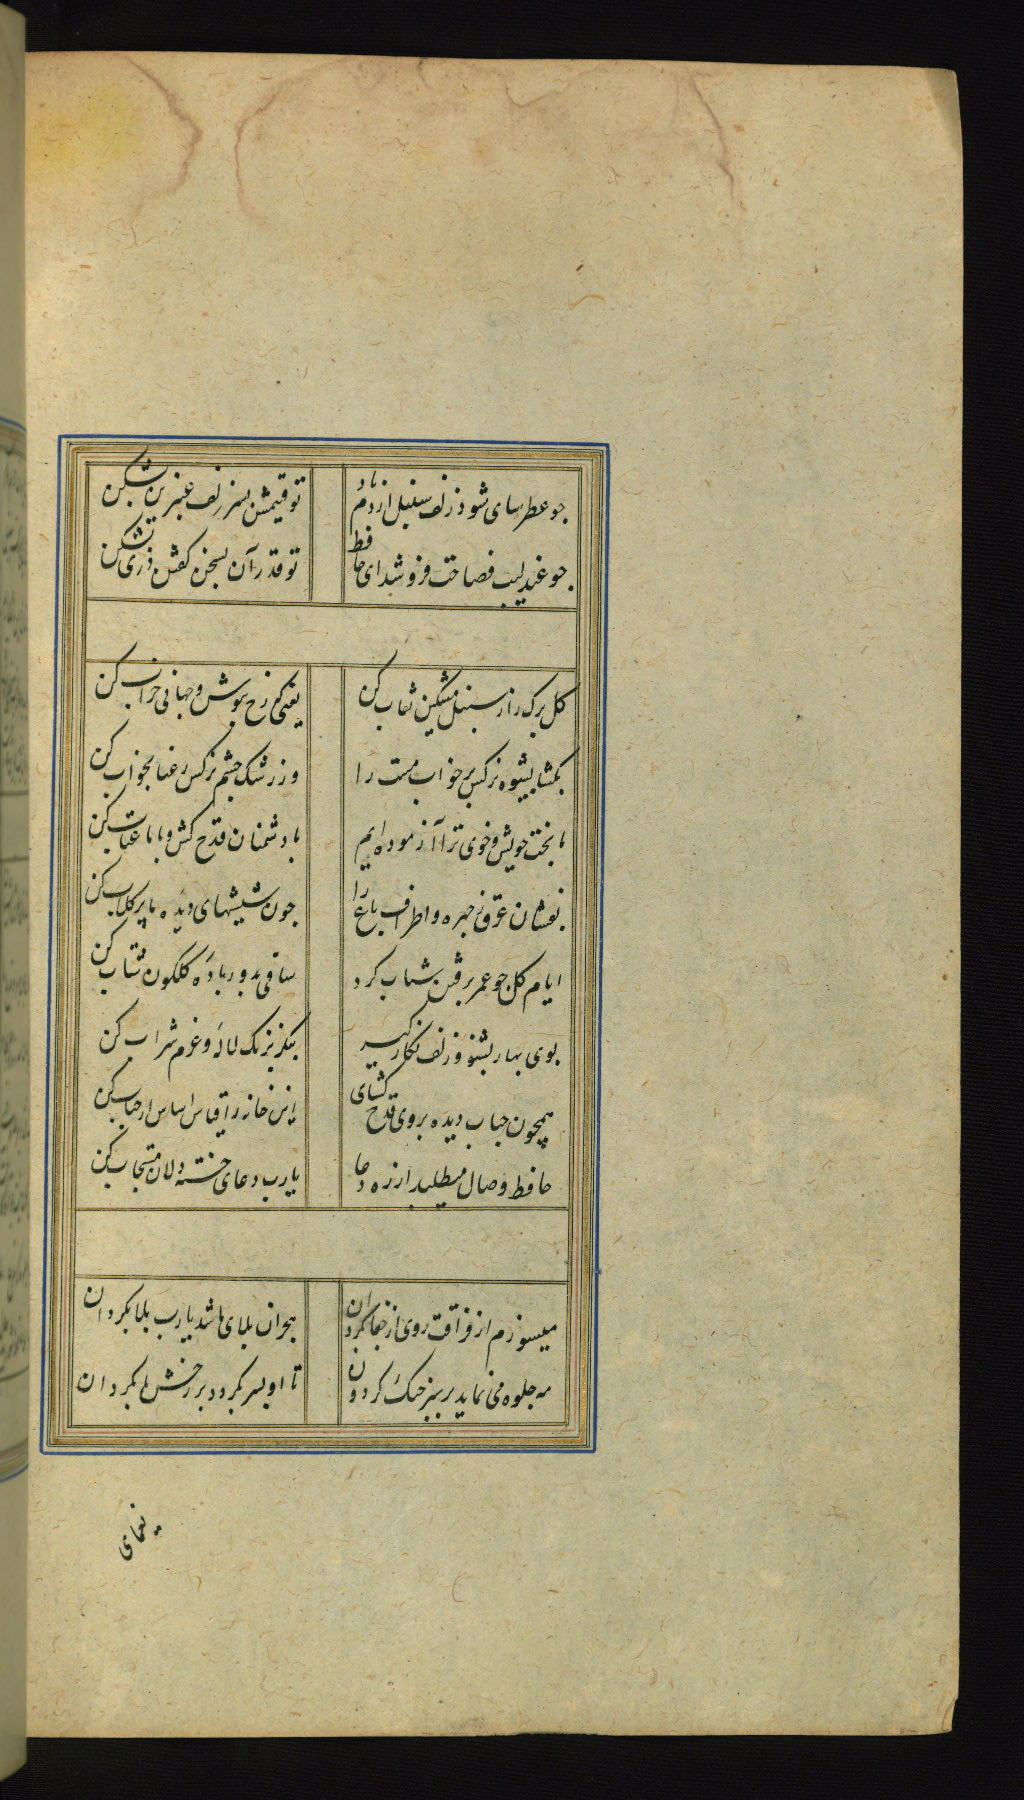 چو عطرسای شود زلف سنبل از دم باد
تو قیمتش بسر زلف عنبرین بشکن
چو عندلیب فصاحت فروشد ای حافظ
تو قدر آن بسخن گفتن دری بشکن
کل برک را ز سنبل مشکین نقاب کن
یعنی که رخ بپوش و جهانی خراب کن
بکشا بشیوه نرکس پر خواب مست را
وز رشک چشم نرکس رعنا بخواب کن
ما بخت خویش و خوی ترا آزموده ایم
با دشمنان قدح کش و با ما عتاب کن
بفشان عرق ز چهره و اطراف باغ را
چون شیشهای دیده ما پر کلاب کن
ایام کل چو عمر برفتن شتاب کرد
ساقی بدور باده کلکون شتاب کن
بوی بهار بشنو و زلف نکار کیر
بنکر برنک لاله و عزم شراب کن
همچون حباب دیده بروی قدح کشای
این خانه را قیاس اساس از حباب کن
حافظ وصال میطلبد از ره دعا
یارب دعای خسته دلان مستجاب کن
میسوزم از فراقت روی از جفا بکردان
هجران بلای ما شد یارب بلا بکردان
مه جلوه می نماید بر سبز خنک کردون
تا او بسر بکردد بر رخش پا بکردان
یغمای